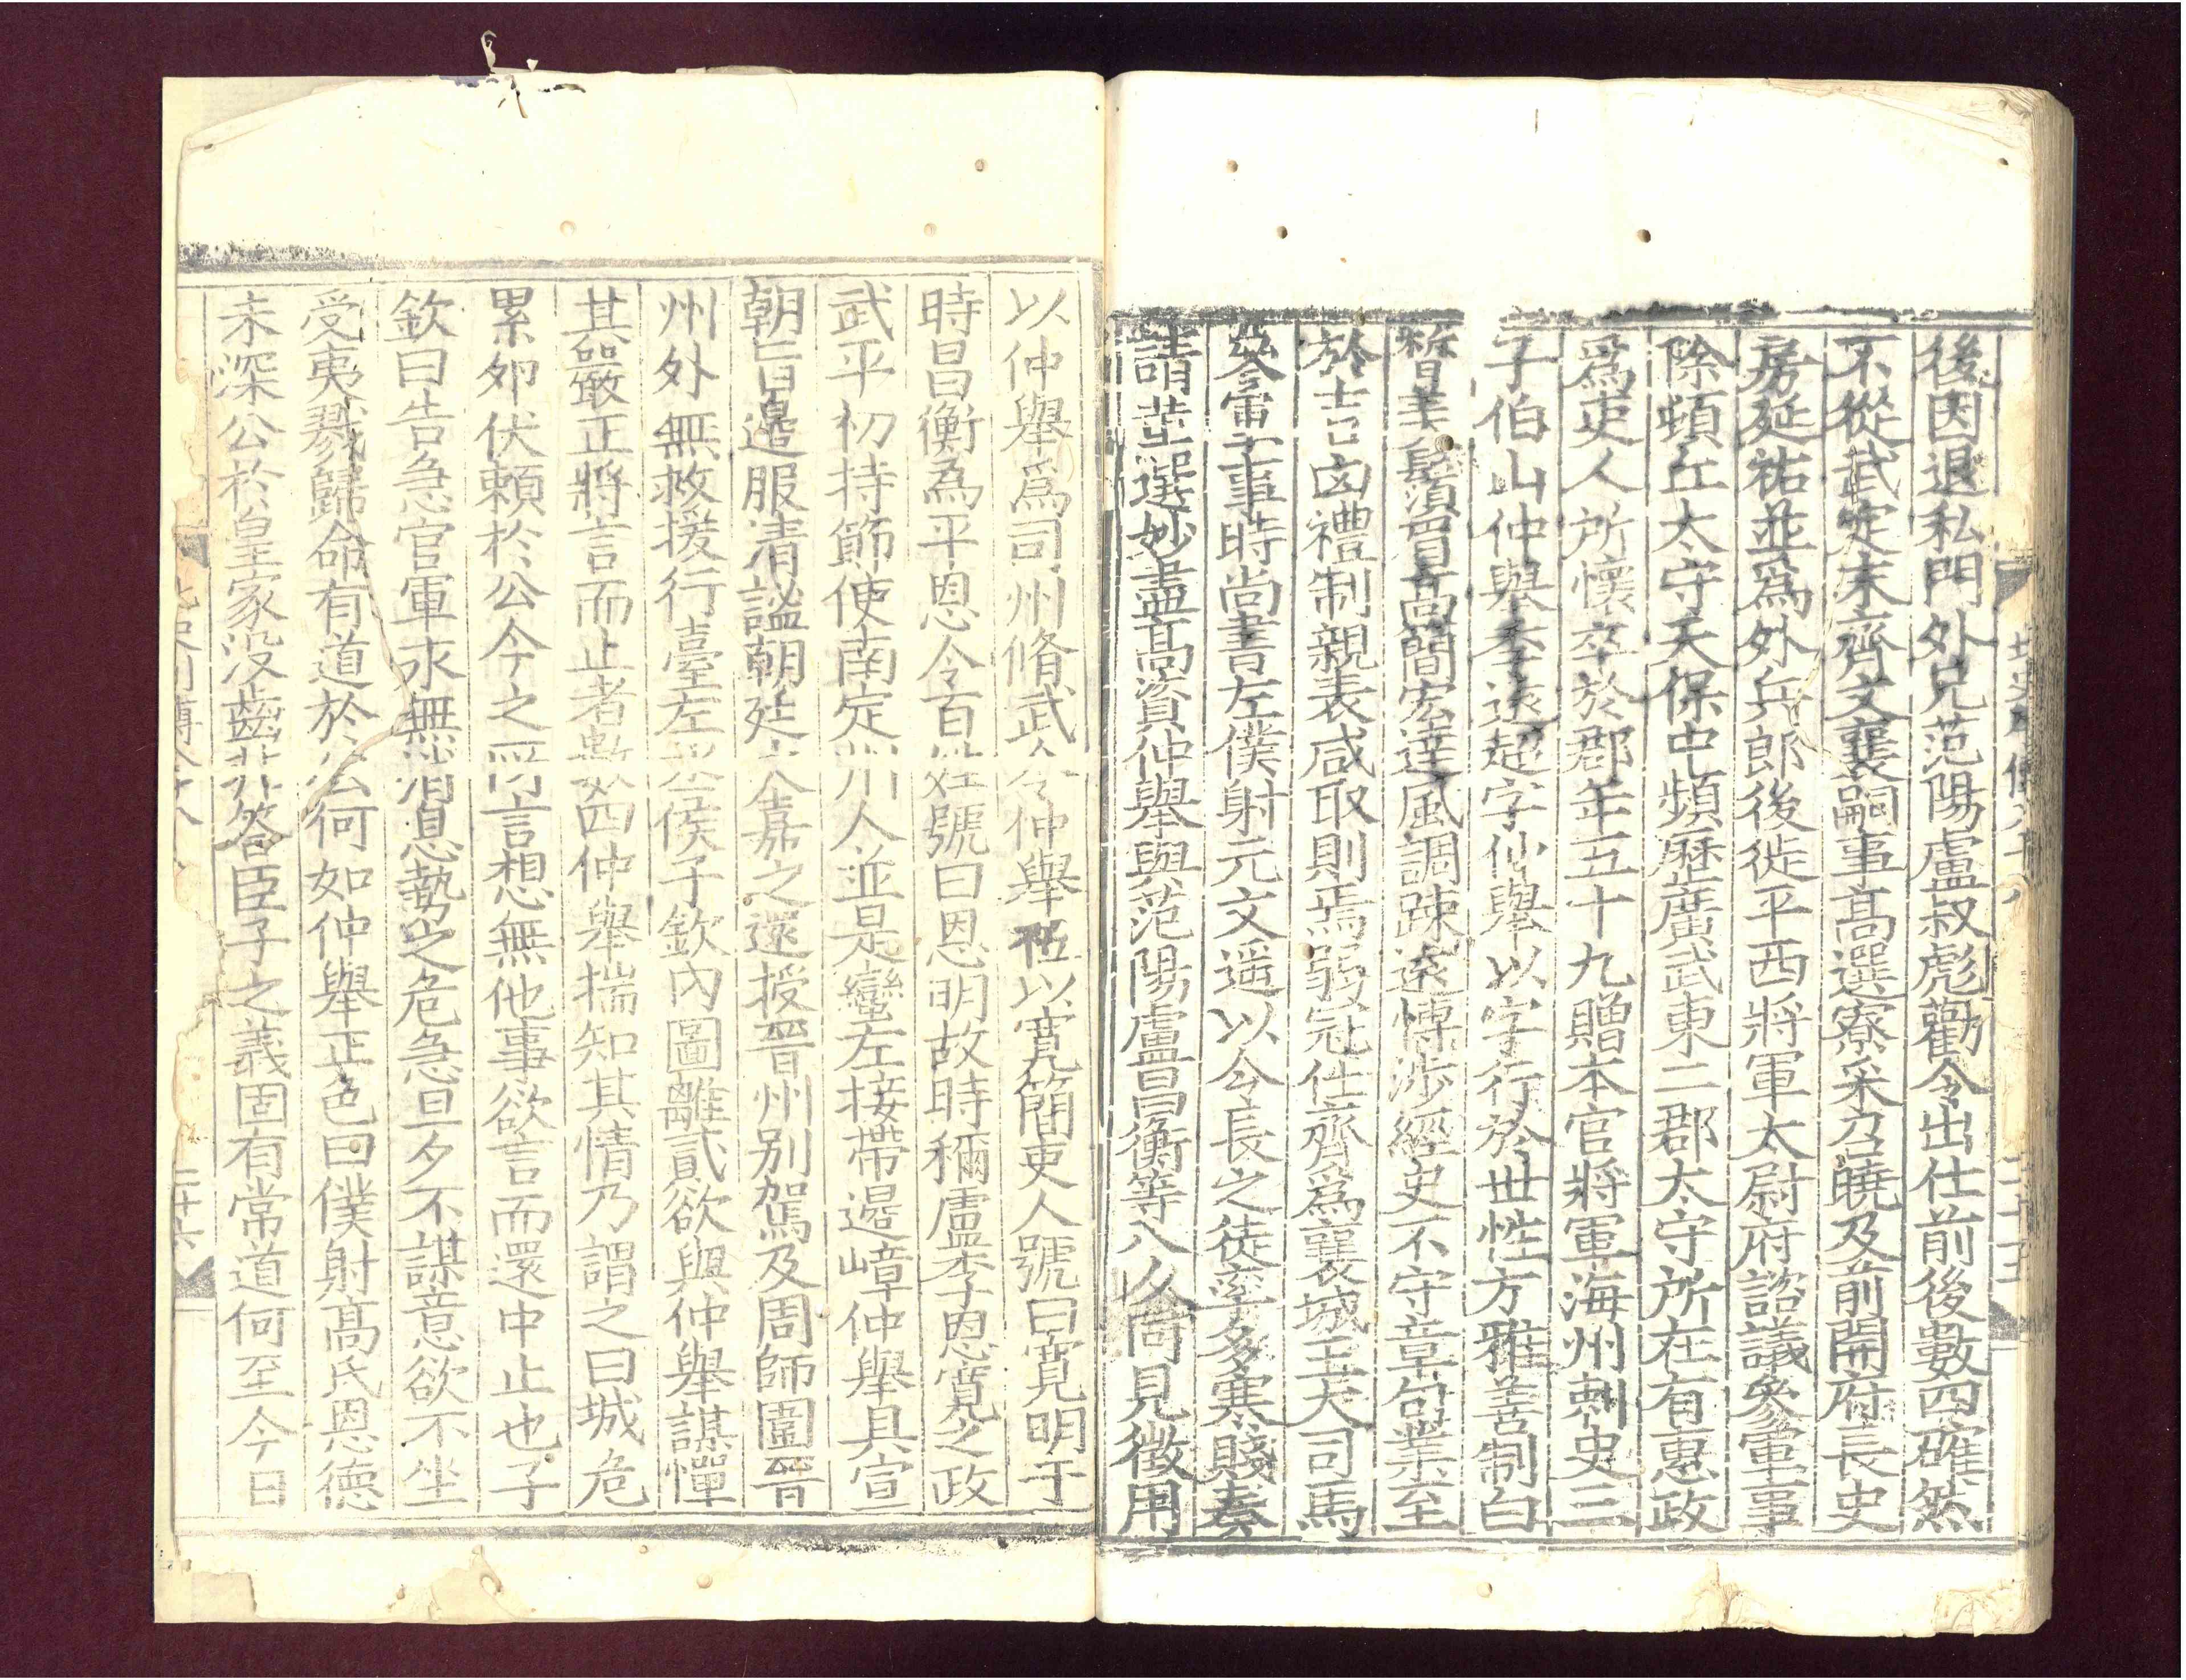 後因退私門外兄范陽盧叔彪勸令出仕前後數四確然
不從武定末齊文襄嗣事高選寮采召曉及前開府長史
房延祐並爲外兵郎後徙平西將軍太尉府諮議參軍事
除頓丘太守天保中頻歷廣武東二郡太守所在有惠政
爲吏人所懷卒於郡年五十九贈本官將軍海州刺史三
子伯山仲舉季遠超字仲舉以字行於世性方雅善制白
皙美鬚眉高簡宏達風調踈遠博涉經史不守章句業至
於吉凶禮制親表咸取則焉弱冠仕齊爲襄城王大司馬
參軍事時尚書左僕射元文遥以今長之徒率多寒賤奏
請革選妙盡高資仲舉與范陽盧昌衡等八人同見徵用
以仲舉爲司州脩武令仲舉莅以寛簡吏人號曰寛明于
時昌衡為平恩令百姓號曰恩明故時稱盧李恩寛之政
武平初持節使南定州人並是蠻左接帶邊嶂仲舉具宣
朝旨邊服清謐朝廷嘉之還授晉州别駕及周師圍晉
州外無救援行臺左丞侯子欽內圖離貳欲與仲舉謀憚
其嚴正將言而止者數四仲舉揣知其情乃謂之曰城危
累卵伏賴於公今之所言想無他事欲言而還中止也子
欽曰告急官軍永無消息勢之危急旦夕不謀意欲不坐
受夷戮歸命有道於公何如仲舉正色曰僕射高氏恩德
未深公於皇家没齒非答臣子之義固有常道何至今日
二十六